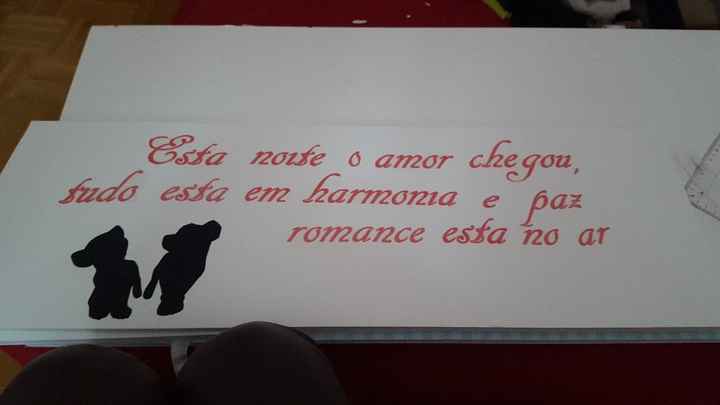 Esta noite o amor chegou,
tudo esta em harmonia e paz
romance esta no ar